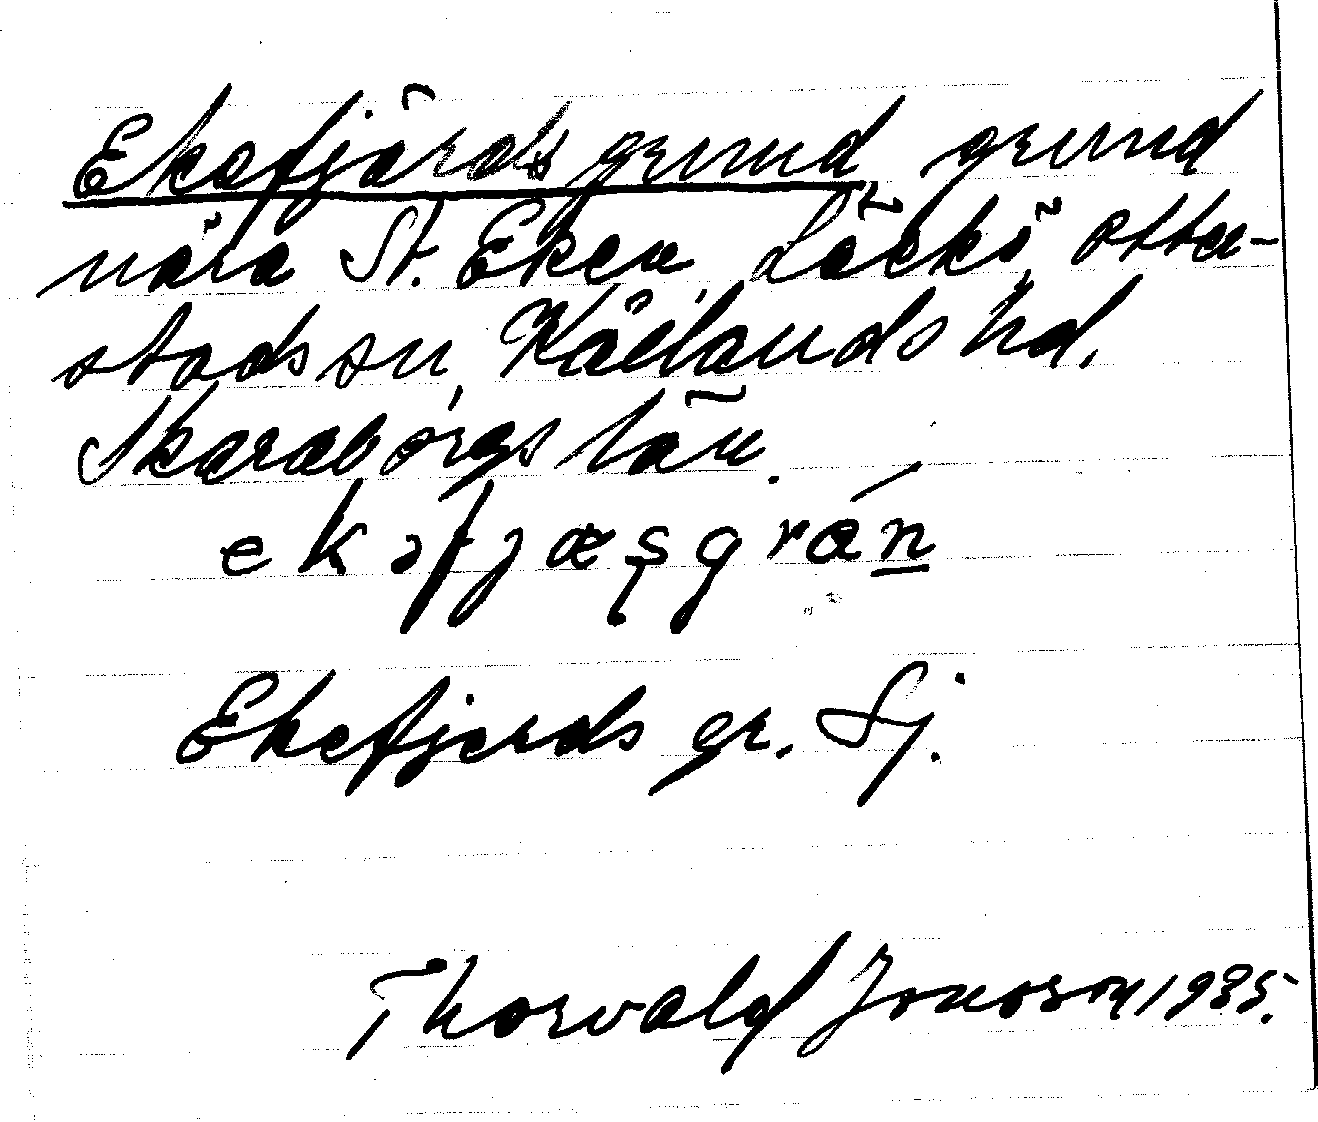 Ekefjärdsgrund, grund
nära St. Eken, Läckö, Otter-
stads sn, Kållands hd.
Skaraborgs län.
ekəfjæşgrán
Ekefjerds gr. Sj.
Thorvald Jonoson 1935.